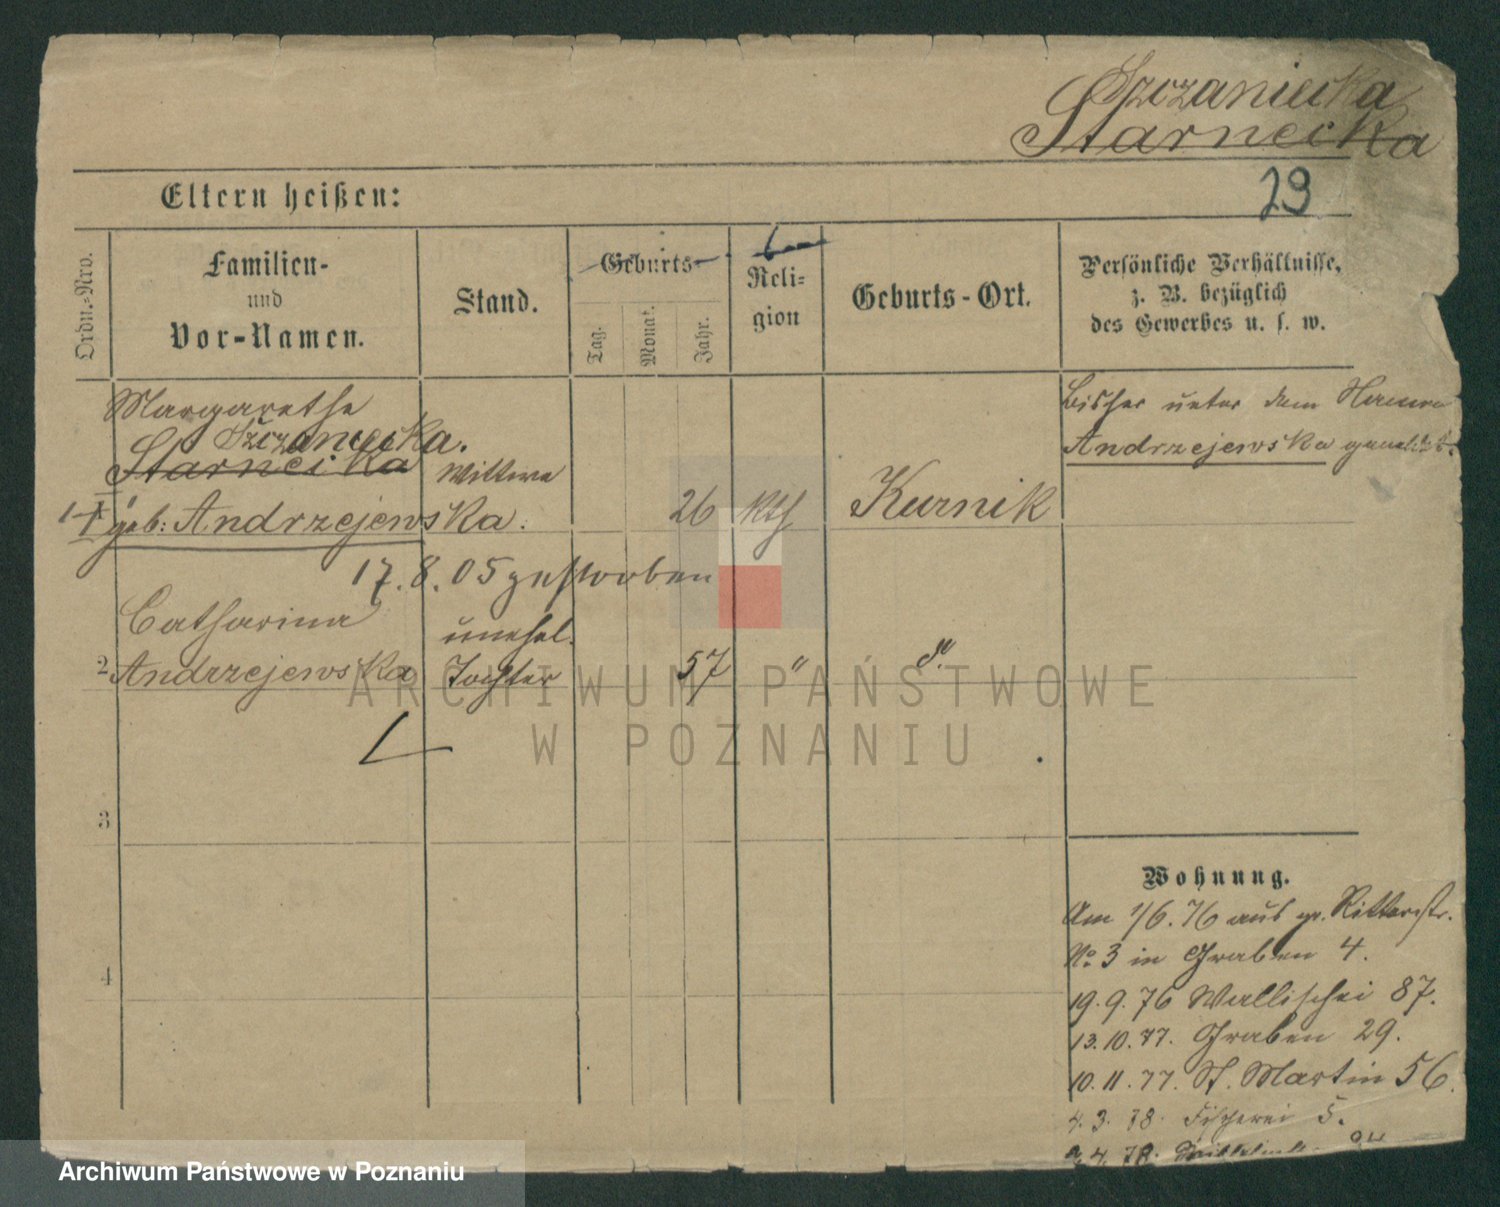 Szczaniecka
Starnecka
29
Eltern heißen:
Ordn.-Nro.
Familien-
und
Vor-Namen.
Stand.
Geburts-
Tag.
Monat.
Jahr.
Reli-
gion
Geburts-Ort.
Persönliche Verhältnisse,
z. B. bezüglich
des Gewerbes u. s. w.
Margarethe
Szczaniecka.
Starnecka
geb: Andrzejewska.
Wittwe
26
kth
Kurnik
Bisher unter dem Namen
Andrzejewska gemeldet.
17.8.05 gestorben
2
Catharina
Andrzejewska
unehel.
Tochter
57
"
d°
3
4
Wohnung.
Am 1/6.76 aus gr. Ritterstr.
No 3 in Graben 4.
19.9.76 Wallischei 87.
13.10.77. Graben 29.
10.11.77. St. Martin 56.
4.3.78. Fischerei 5.
4.78.
ARCHIWUM PAŃSTWOWE
W POZNANIU
Archiwum Państwowe w Poznaniu